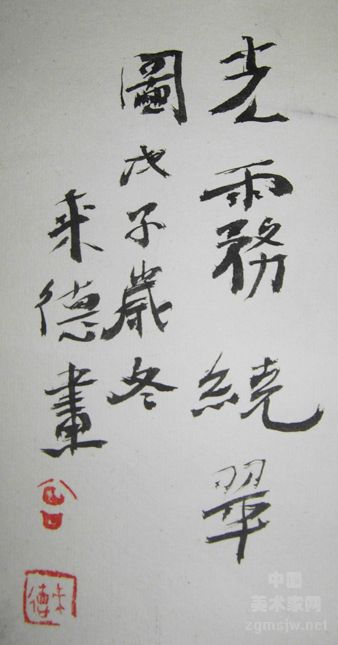 光霧繞翠
圖戊子歲冬
来德畫
中国
美术家网
zgmsjw.net